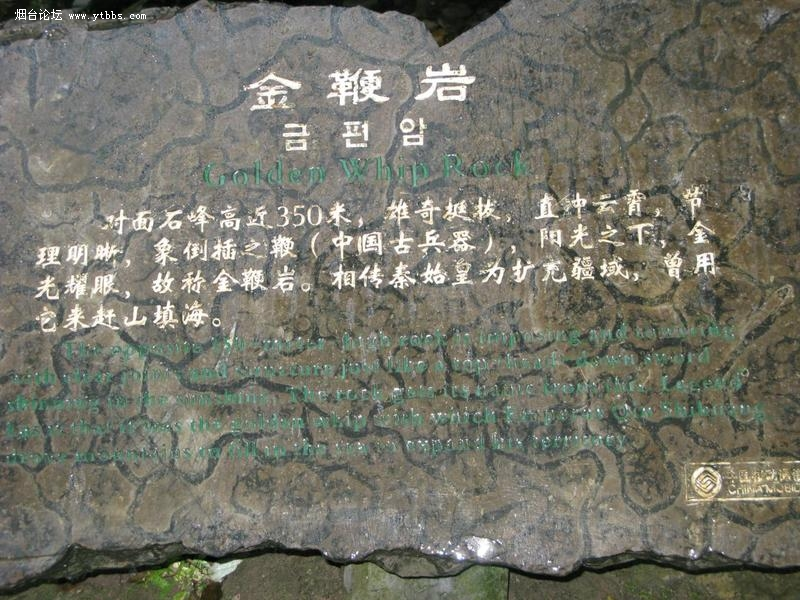 烟台论坛
www.ytbbs.com
金鞭岩
금편암
Golden Whip Rock
对面石峰高近350米，雄奇挺拔，直冲云霄，节
理明晰，象倒插之鞭（中国古兵器），阳光之下，金
光耀眼，故称金鞭岩。相传秦始皇为扩充疆域，曾用
它来赶山填海。
The opposite 350-meter-high rock is imposing and towering
with clear joints and structure just like a top-thread-down sword
shinning in the sunshine. The rock gets its name from this. Legend
has it that it was the golden whip with which Emperor Qin Shihuang
move mountains to fill in the sea to expand his territory.
CHINA MOBIL